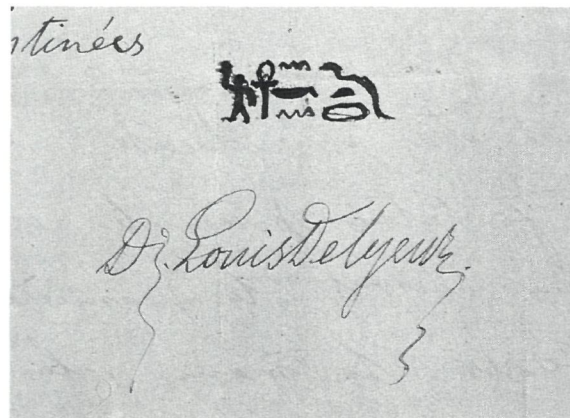 tinées
Dr. Louis Delgeur.